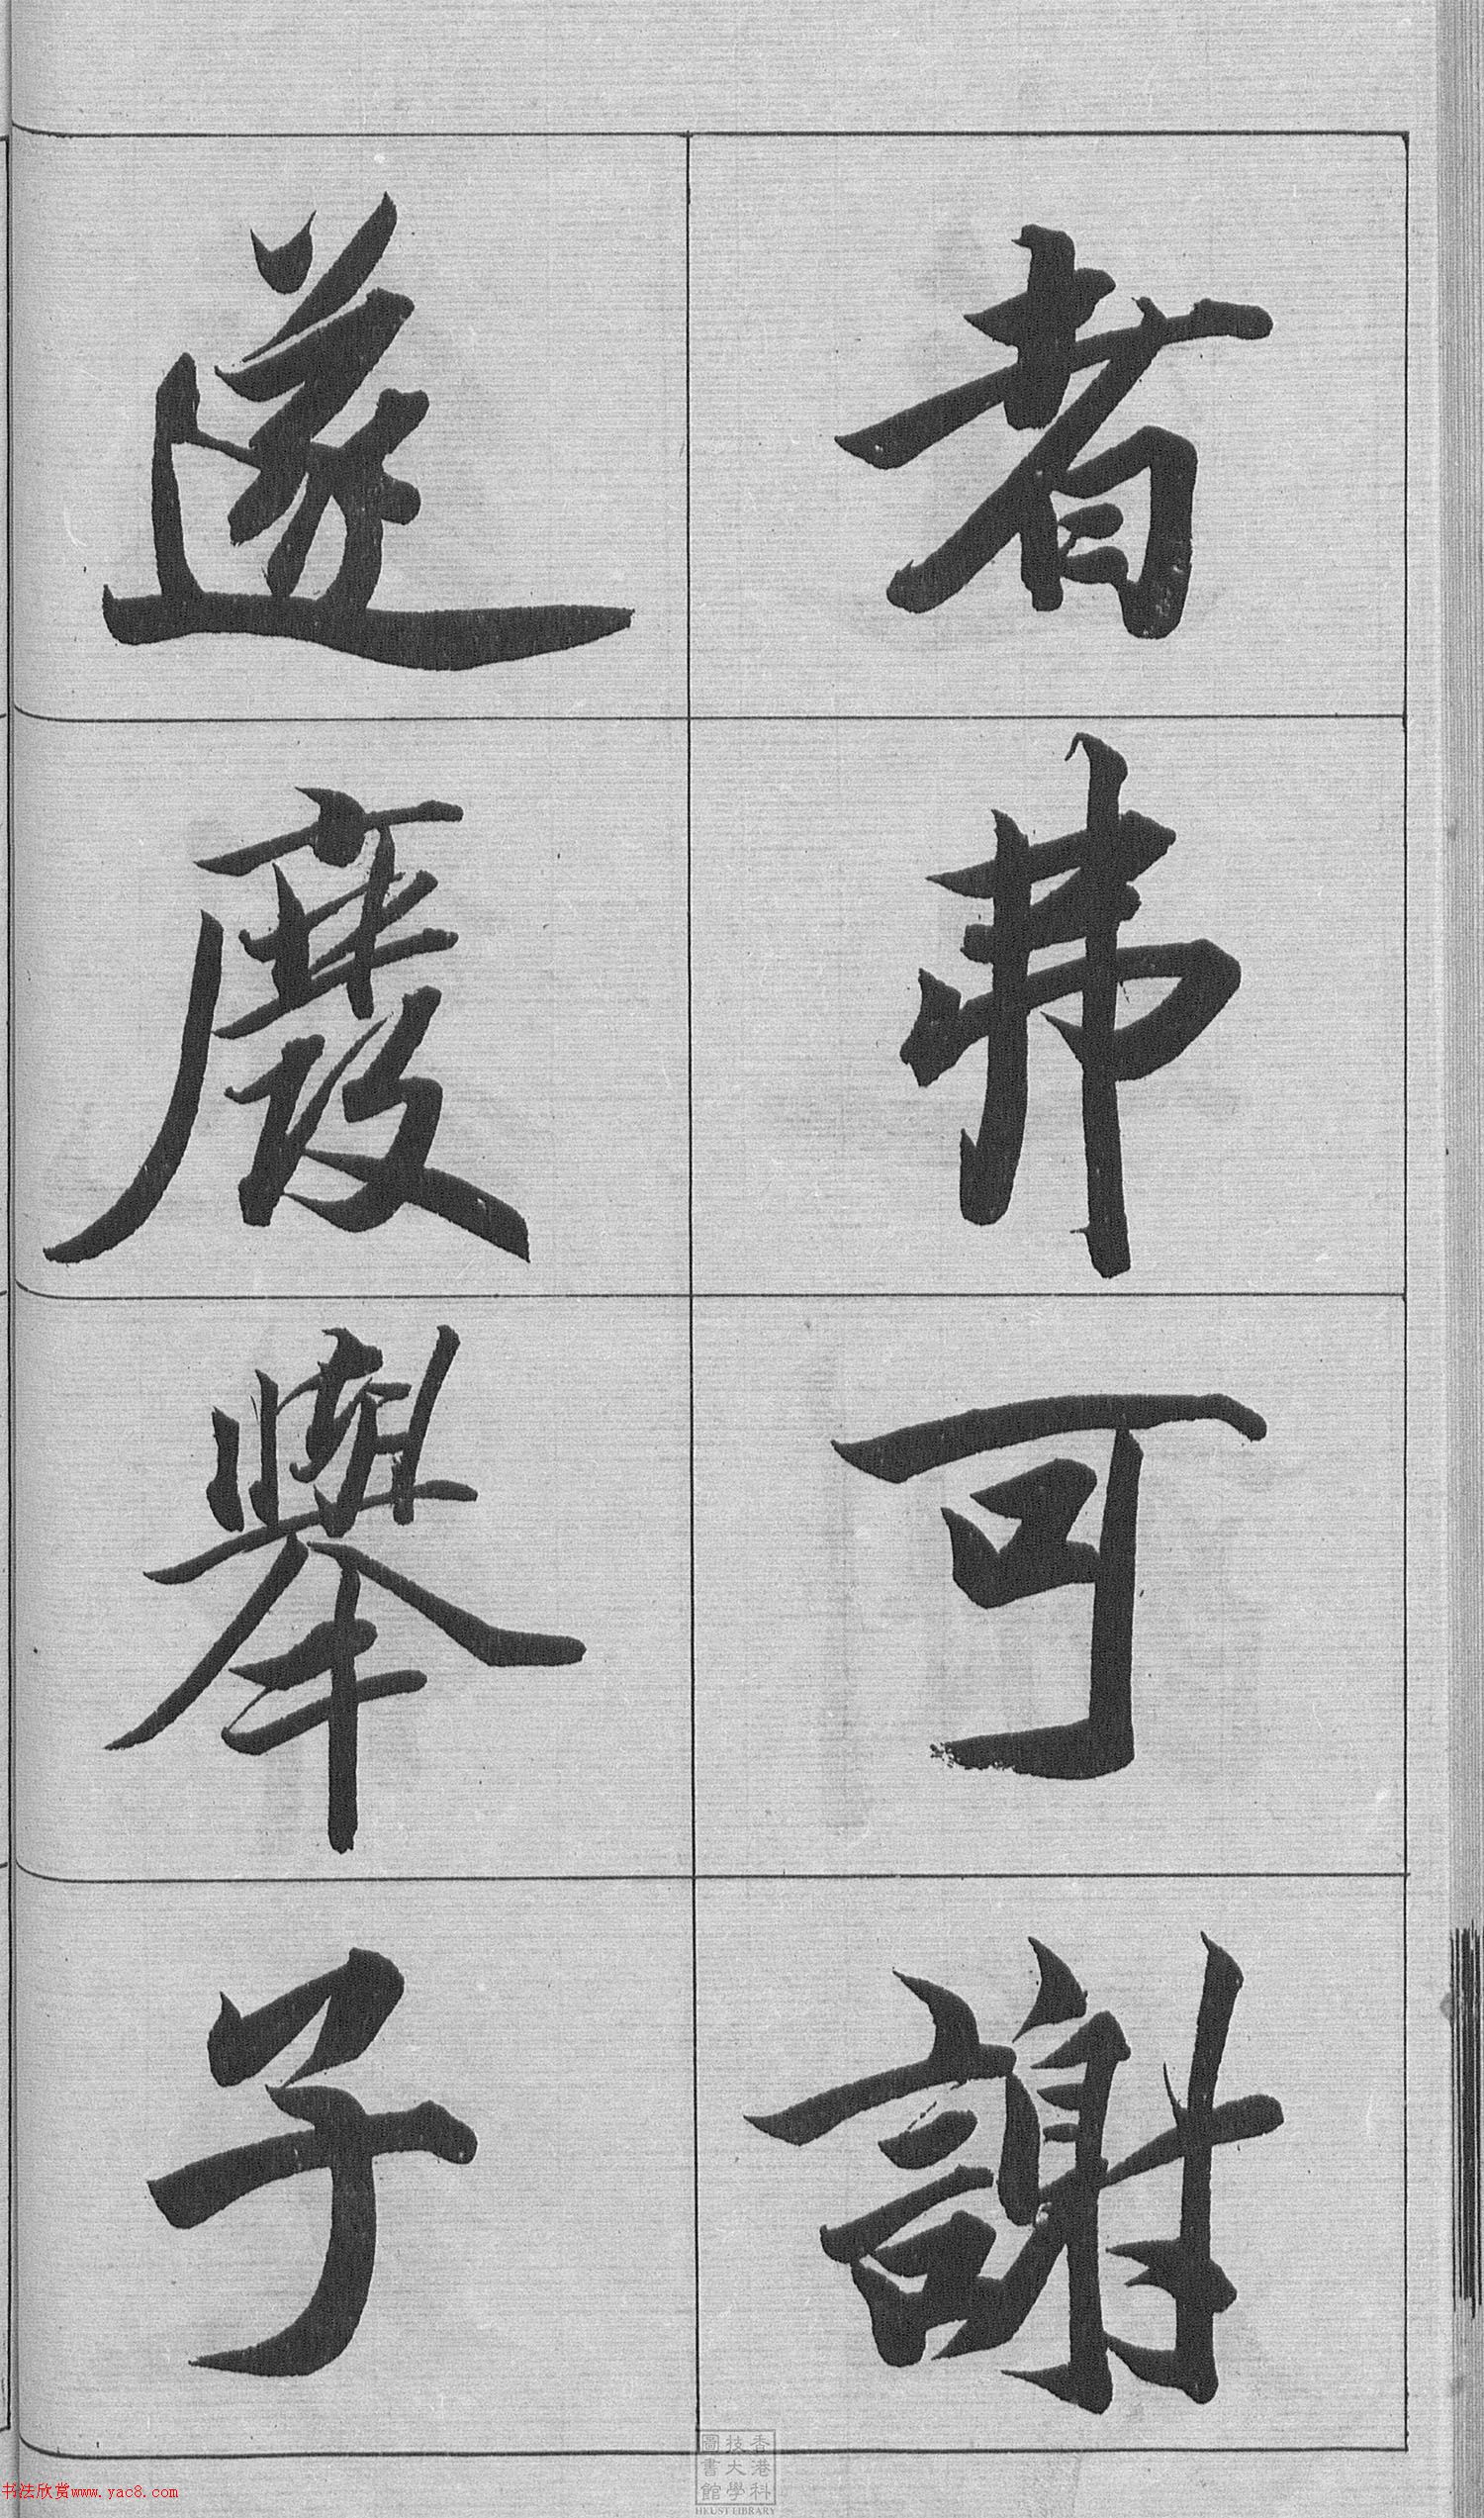 者弗可謝
遂廢舉子
香港科
技大學
圖書館
HKUST LIBRARY
书法欣赏www.yac8.com